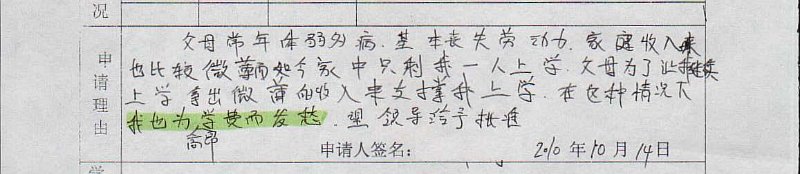 况
父母常年体弱多病，基本丧失劳动力，家庭收入来
也比较微薄而如今家中只剩我一人上学，父母为了让我继续
上学，拿出微薄的收入来支撑我上学，在这种情况下
我也为高昂学费而发愁，望领导给予批准
申请理由
申请人签名： 2010 年 10 月 14 日